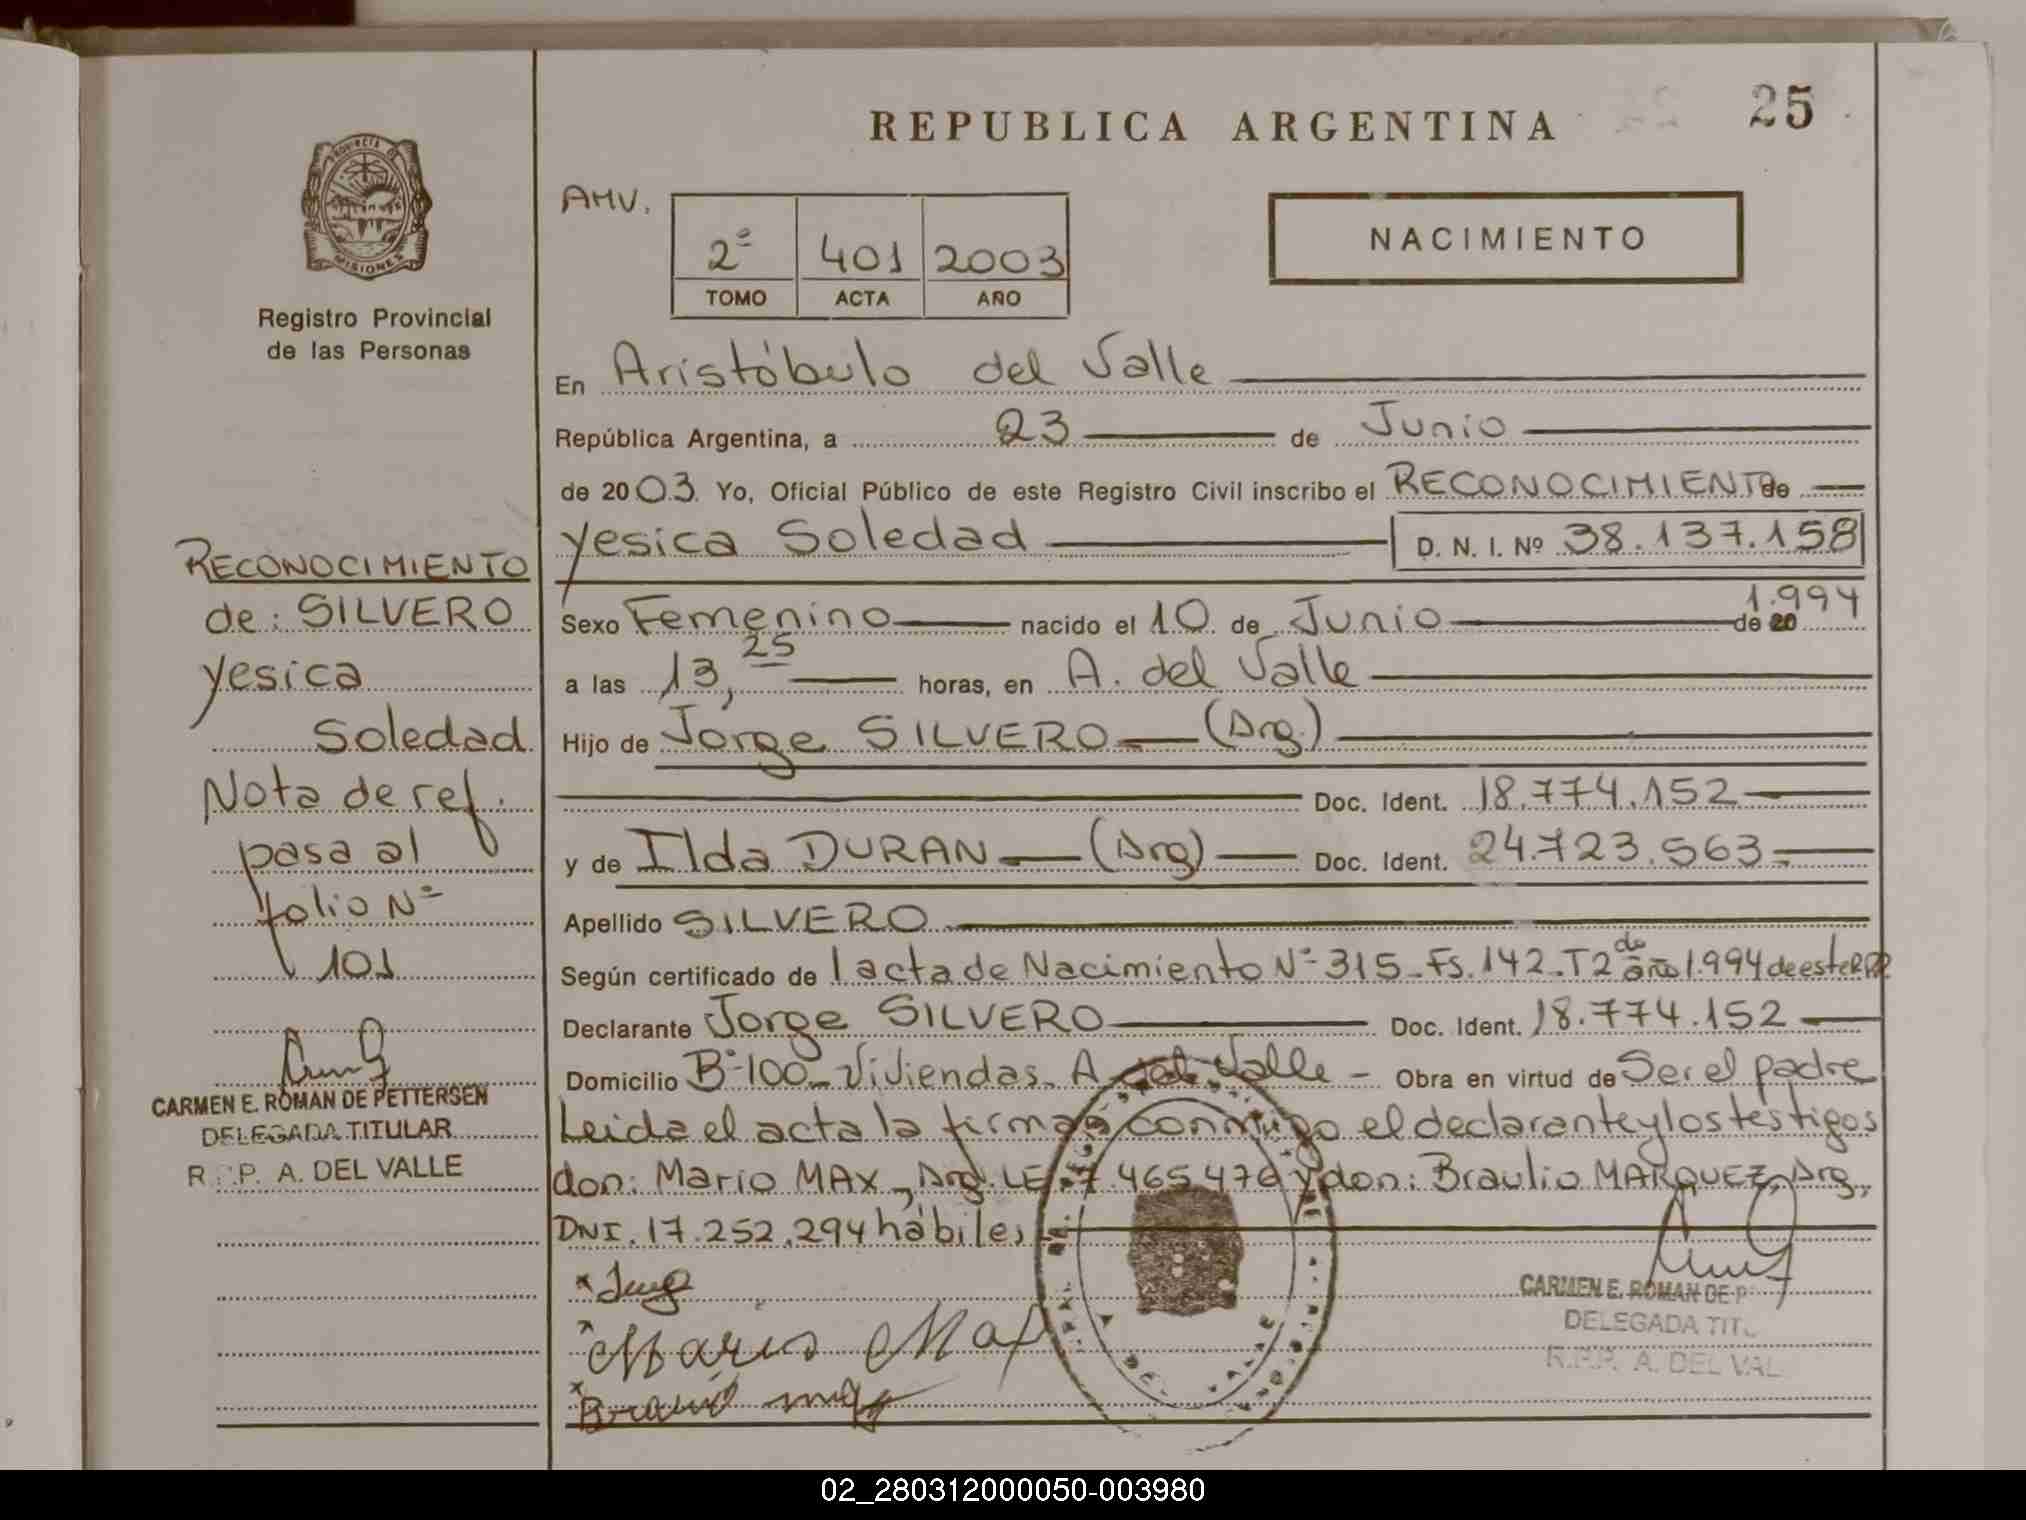 REPUBLICA ARGENTINA
25
PROVINCIA DE
MISIONES
Registro Provincial
de las Personas
AMV.
2º 401 2003
TOMO ACTA AÑO
NACIMIENTO
En Aristóbulo del Valle
República Argentina, a 23 de Junio
de 2003. Yo, Oficial Público de este Registro Civil inscribo el RECONOCIMIENTO de
Yesica Soledad D. N. I. Nº 38.137.158
Sexo Femenino nacido el 10 de Junio de 20 1.994
a las 13,25 horas, en A. del Valle
Hijo de Jorge SILVERO (Arg.)
Doc. Ident. 18.774.152
y de Ilda DURAN (Arg) Doc. Ident. 24.723.563
Apellido SILVERO
Según certificado de l acta de Nacimiento Nº 315_Fs.142_T2º de año 1.994 de este RPP
Declarante Jorge SILVERO Doc. Ident. 18.774.152
Domicilio Bº 100 Viviendas. A. del Valle - Obra en virtud de Ser el padre
Leida el acta la firman conmigo el declarante y los testigos
don: Mario MAX, Arg. LE. 7.465.476 y don: Braulio MARQUEZ, Arg.
DNI. 17.252.294 hábiles
RECONOCIMIENTO
de: SILVERO
Yesica
Soledad
Nota de ref.
pasa al
folio Nº
101
CARMEN E. ROMAN DE PETTERSEN
DELEGADA TITULAR
R.P.P. A. DEL VALLE
Mario Max
CARMEN E. ROMAN DE P
DELEGADA TIT
R.P.P. A. DEL VAL
02_280312000050-003980